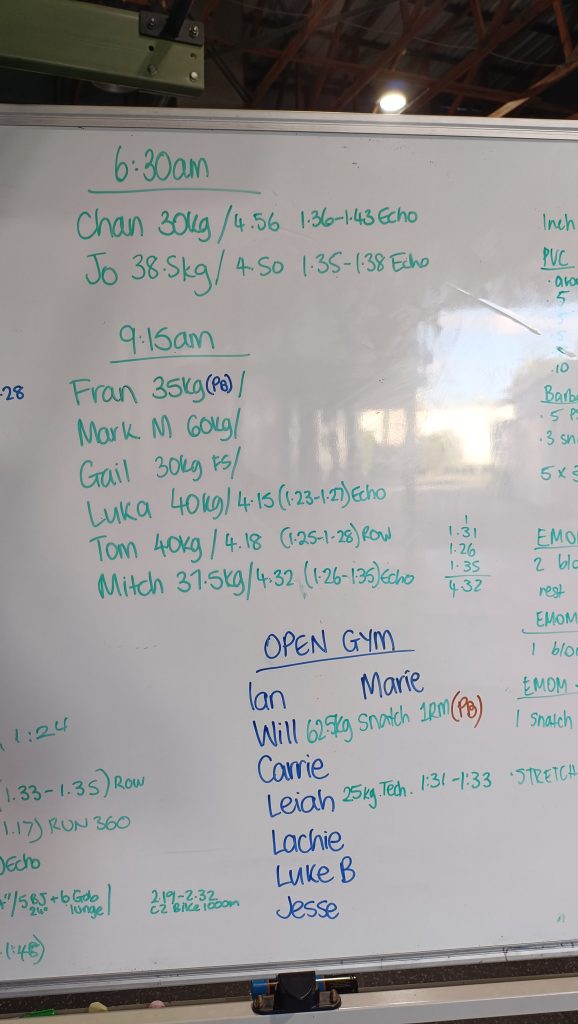 6:30am
Chan 30kg / 4.56 1.36-1.43 Echo
Jo 38.5kg / 4.50 1.35-1.38 Echo
9:15am
-28
Fran 35kg (PB) /
Mark M 60kg/
Gail 30kg FS/
Luka 40kg/ 4.15 (1.23-1.27) Echo
Tom 40kg / 4.18 (1.25-1.28) Row
Mitch 37.5kg/4.32 (1.26-1.35) Echo
1
1.31
1.26
1.35
4.32
OPEN GYM
Ian Marie
Will 62.5kg Snatch 1RM (PB)
Carrie
Leiah 25kg Tech. 1:31-1:33
Lachie
Luke B
Jesse
1:24
1.33-1.35) Row
1.17) RUN 360
)Echo
"/5 BJ + 6 Gob
24" lunge
2.19-2.32
C2 Bike 1000m
Inch
PVC
.5
.10
Barb
.3 sn
5 x
EMO
2 blo
rest
EMOM
1 bloc
EMOM -
1 Snatch
·STRETCH